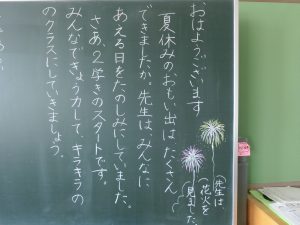 おはようございます
夏休みのおもい出は、たくさん
できましたか。先生は、みんなに
あえる日をたのしみにしていました。
さあ、2学きのスタートです。
みんなできょう力して、キラキラの
のクラスにしていきましょう。
(先生は
花火を
見ました。)